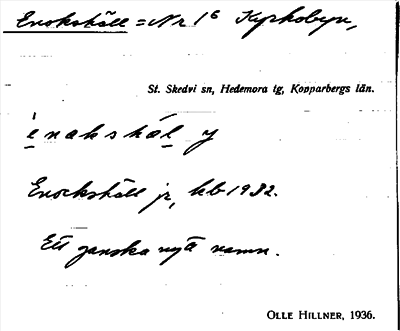 Enokshäll = Nr 1⁶ Kyrkobyn,
St. Skedvi sn, Hedemora tg, Kopparbergs län.
enakshäl y
Enockshäll jr, kb 1932.
Ett ganska nytt namn.
OLLE HILLNER, 1936.